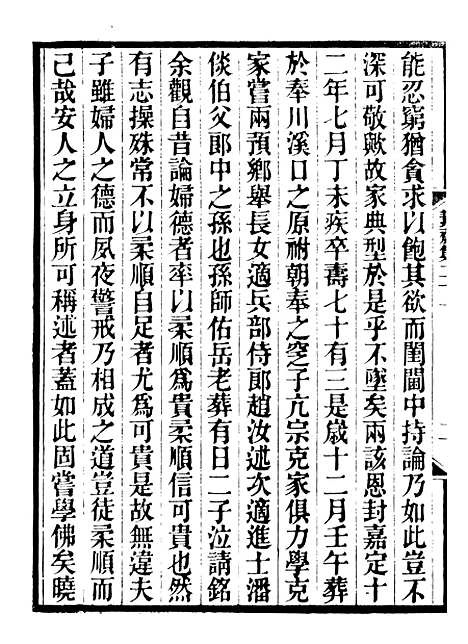 能忍窮猶貪求以飽其欲而閨閫中持論乃如此豈不
深可敬歟故家典型於是乎不墜矣兩該恩封嘉定十
二年七月丁未疾卒壽七十有三是歲十二月壬午葬
於奉川溪口之原祔朝奉之窆子亢宗克家俱力學克
家嘗兩預鄉舉長女適兵部侍郎趙汝述次適進士潘
倓伯父郎中之孫也孫師佑岳老葬有日二子泣請銘
余觀自昔論婦德者率以柔順爲貴柔順信可貴也然
有志操殊常不以柔順自足者尤爲可貴是故無違夫
子雖婦人之德而夙夜警戒乃相成之道豈徒柔順而
己哉安人之立身所可稱述者蓋如此固嘗學佛矣曉